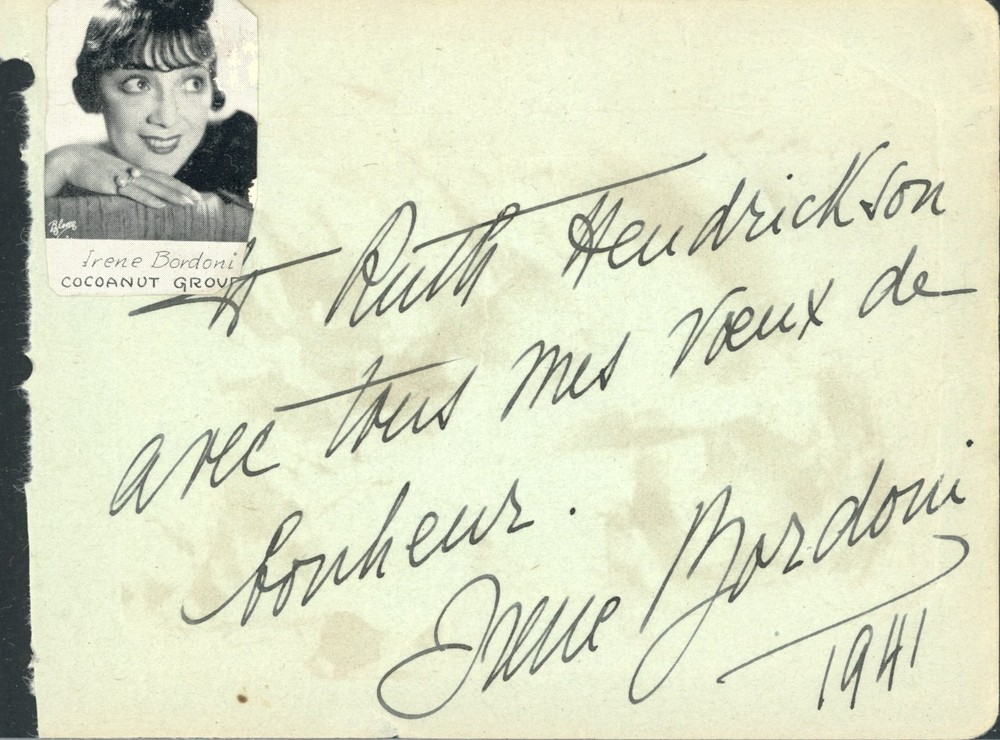 Irene Bordoni
COCOANUT GROVE
A Ruth Hendrickson
avec tous mes vœux de
bonheur.
Irene Bordoni
1941